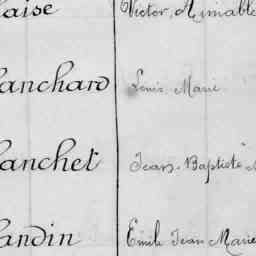 laise Victor, Aimable
lanchard Louis Marie
lanchet Jean-Baptiste
landin Emile Jean Marie